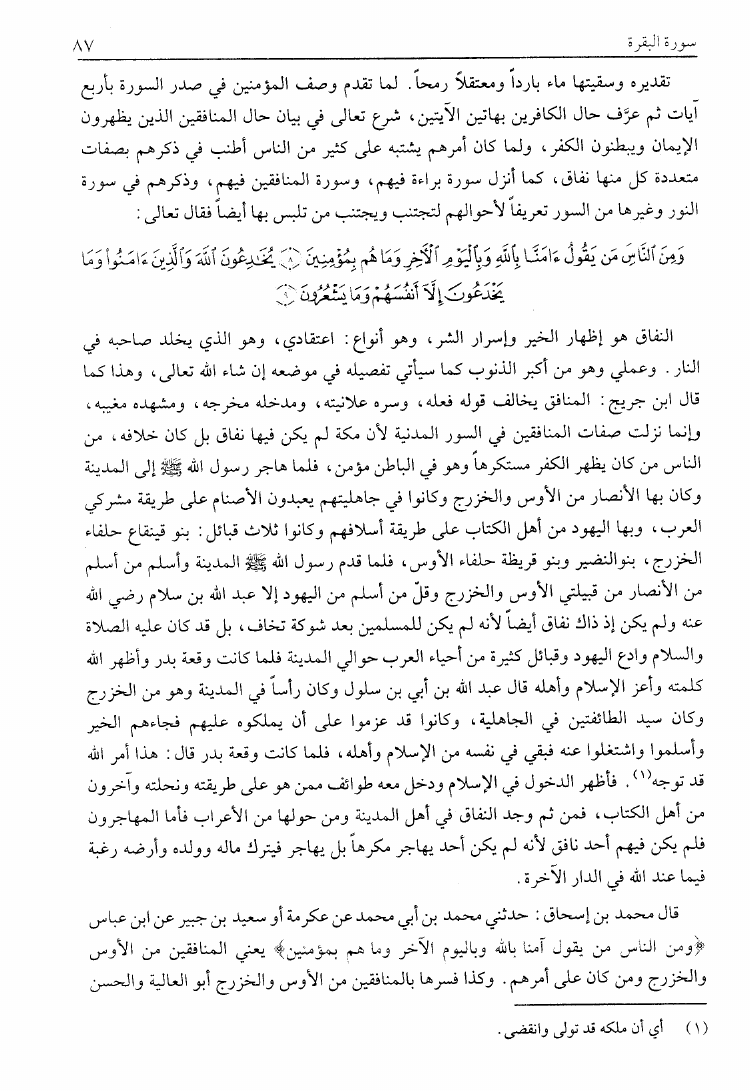 سورة البقرة ٨٧
تقديره وسقيتها ماء بارداً ومعتقلاً رمحاً. لما تقدم وصف المؤمنين في صدر السورة بأربع
آيات ثم عرَّف حال الكافرين بهاتين الآيتين، شرع تعالى في بيان حال المنافقين الذين يظهرون
الإيمان ويبطنون الكفر، ولما كان أمرهم يشتبه على كثير من الناس أطنب في ذكرهم بصفات
متعددة كل منها نفاق، كما أنزل سورة براءة فيهم، وسورة المنافقين فيهم، وذكرهم في سورة
النور وغيرها من السور تعريفاً لأحوالهم لتجتنب ويجتنب من تلبس بها أيضاً فقال تعالى:
وَمِنَ ٱلنَّاسِ مَن يَقُولُ ءَامَنَّا بِٱللَّهِ وَبِٱلْيَوْمِ ٱلْأَخِرِ وَمَا هُم بِمُؤْمِنِينَ ﴿٨﴾ يُخَٰدِعُونَ ٱللَّهَ وَٱلَّذِينَ ءَامَنُوا۟ وَمَا
يَخْدَعُونَ إِلَّآ أَنفُسَهُمْ وَمَا يَشْعُرُونَ ﴿٩﴾
النفاق هو إظهار الخير وإسرار الشر، وهو أنواع: اعتقادي، وهو الذي يخلد صاحبه في
النار. وعملي وهو من أكبر الذنوب كما سيأتي تفصيله في موضعه إن شاء الله تعالى، وهذا كما
قال ابن جريج: المنافق يخالف قوله فعله، وسره علانيته، ومدخله مخرجه، ومشهده مغيبه،
وإنما نزلت صفات المنافقين في السور المدنية لأن مكة لم يكن فيها نفاق بل كان خلافه، من
الناس من كان يظهر الكفر مستكرهاً وهو في الباطن مؤمن، فلما هاجر رسول الله ﷺ إلى المدينة
وكان بها الأنصار من الأوس والخزرج وكانوا في جاهليتهم يعبدون الأصنام على طريقة مشركي
العرب، وبها اليهود من أهل الكتاب على طريقة أسلافهم وكانوا ثلاث قبائل: بنو قينقاع حلفاء
الخزرج، بنوالنضير وبنو قريظة حلفاء الأوس، فلما قدم رسول الله ﷺ المدينة وأسلم من أسلم
من الأنصار من قبيلتي الأوس والخزرج وقلّ من أسلم من اليهود إلا عبد الله بن سلام رضي الله
عنه ولم يكن إذ ذاك نفاق أيضاً لأنه لم يكن للمسلمين بعد شوكة تخاف، بل قد كان عليه الصلاة
والسلام وادع اليهود وقبائل كثيرة من أحياء العرب حوالي المدينة فلما كانت وقعة بدر وأظهر الله
كلمته وأعز الإسلام وأهله قال عبد الله بن أبي بن سلول وكان رأساً في المدينة وهو من الخزرج
وكان سيد الطائفتين في الجاهلية، وكانوا قد عزموا على أن يملكوه عليهم فجاءهم الخير
وأسلموا واشتغلوا عنه فبقي في نفسه من الإسلام وأهله، فلما كانت وقعة بدر قال: هذا أمر الله
قد توجه(١). فأظهر الدخول في الإسلام ودخل معه طوائف ممن هو على طريقته ونحلته وآخرون
من أهل الكتاب، فمن ثم وجد النفاق في أهل المدينة ومن حولها من الأعراب فأما المهاجرون
فلم يكن فيهم أحد نافق لأنه لم يكن أحد يهاجر مكرهاً بل يهاجر فيترك ماله وولده وأرضه رغبة
فيما عند الله في الدار الآخرة.
قال محمد بن إسحاق: حدثني محمد بن أبي محمد عن عكرمة أو سعيد بن جبير عن ابن عباس
﴿ومن الناس من يقول آمنا بالله وباليوم الآخر وما هم بمؤمنين﴾ يعني المنافقين من الأوس
والخزرج ومن كان على أمرهم. وكذا فسرها بالمنافقين من الأوس والخزرج أبو العالية والحسن
(١) أي أن ملكه قد تولى وانقضى.